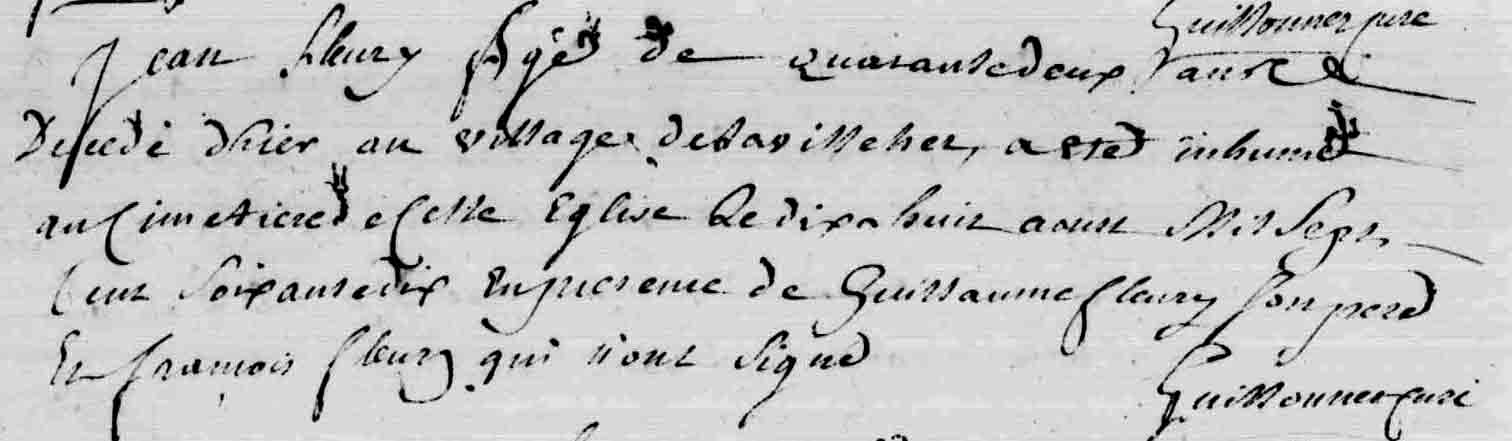 Guillonnet curé
Jean fleury Agé de quarante deux ans
Decedé d'hier au village de a eté inhumé
au Cimetiere de Cette Eglise Le dix huit aoust Mil Sept
Cent Soixante dix En presence de Guillaume fleury Son pere
Et françois fleury qui n'ont Signé
Guillonnet curé